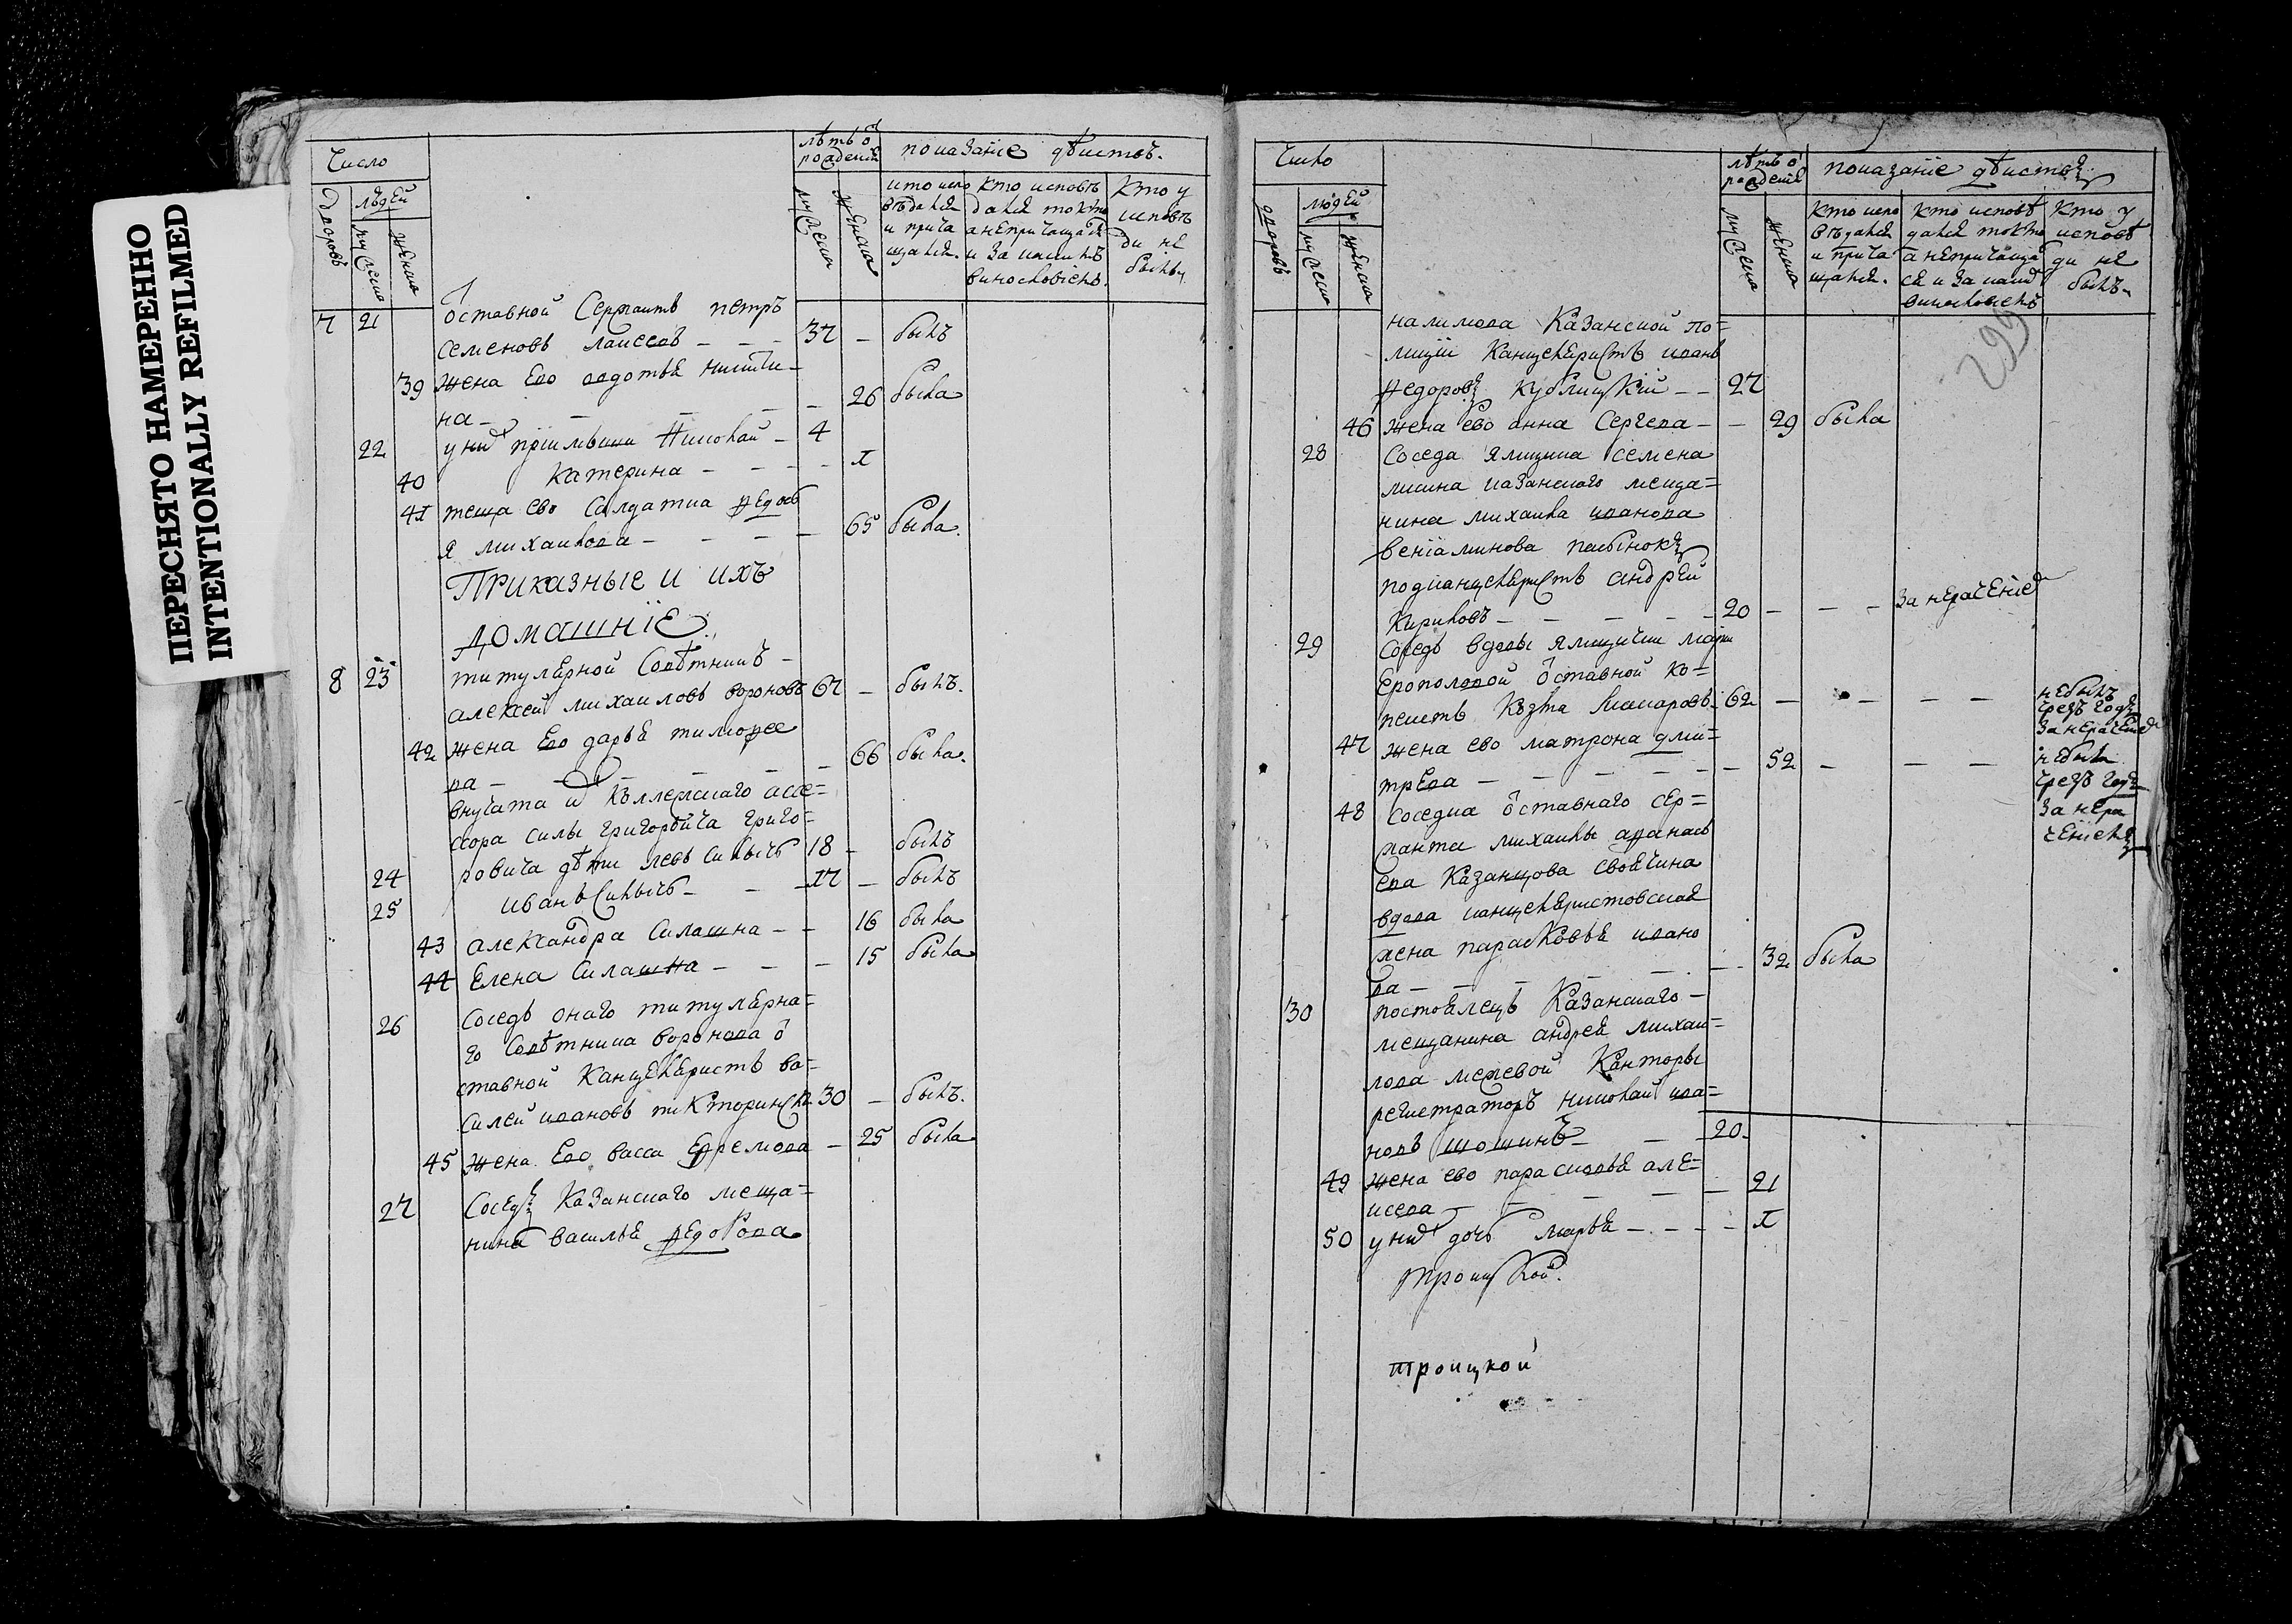 ПЕРЕСНЯТО НАМЕРЕННО
INTENTIONALLY REFILMED
Число
лѣтъ ѿ рожденія
показаніе дѣйствъ.
дворовъ
людей
мужеска
женска
мужеска
женска
кто испо
вѣдался
и прича
щался.
кто исповѣ
дался токмо
а непричащался
и за какимъ
винословіемъ.
Кто у
исповѣ
ди не
былъ
7 21 ѿставной Сержантъ петръ
семеновъ 37 — былъ
39 жена Ево авдотья никити-
на — 26 была
22 у них Николай — 4
40 катерина — 1
41 теща ево Салдатка федось
я михаилова — 65 была.
ПРиказныЕ и ихъ
домашніЕ
8 23 титулярной Совѣтникъ —
алексѣй михаиловъ вороновъ 67 — былъ.
42 жена Ево дарья тимофее
ва — 66 была.
внучата ѿ коллежскаго ассе=
сора силы григорьича григо=
24 ровича дѣти левъ Силычъ 18 — былъ
25 иванъ Силычъ — 17 — былъ
43 александра Силашна — 16 была
44 Елена Силашна — 15 была
26 Соседъ онаго титулярна=
го Совѣтника воронова ѿ
ставной Канцеляристъ ва=
силей ивановъ 30 — былъ.
45 жена Ево васса Ефремова — 25 была
27 Соседъ Казанскаго меща=
нина василья федорова
Число
лѣтъ ѿ рожденія
показаніе дѣйствъ
дворовъ
людей
мужеска
женска
мужеска
женска
Кто испо
вѣдался
и прича
щался.
Кто исповѣ
дался токмо
а непричаща
ся и за какимъ
винословіемъ
Кто у
исповѣ
ди не
былъ
299
налимова Казанской по=
лиціи Канцеляристъ иванъ
федоровъ Кублицкій — 27
46 жена ево анна Сергева — 29 была
28 Соседа Ямщика семена
лисина казанскаго меща=
нина михаила иванова
веніаминова пасынокъ
подканцеляристъ андрей
Кириловъ — 20 — — — За нераченіем
29 Соседъ вдовы Ямщички марьи
Ерополовой ѿставной ко=
пеистъ Козма Комаровъ 62 — — — — небылъ
чрезъ годъ
за нераченіем
47 жена ево матрона дми=
трева — 52 — — — небыла
чрезъ годъ
за нера
ченіемъ
48 Соседка ѿставнаго сер=
жанта михаилы афанась
ева Казанцова своячина
вдова канцеляристовская
жена парасковья ивано
ва — 32 была
30 постоялецъ Казанскаго —
мещанина андрея михаи=
лова межевой Канторы
регистраторъ николай ива=
новъ шошинъ — 20
49 жена ево парасковья але=
ксева — 21
50 у них дочь марья — 1
троицкой.
троицкой